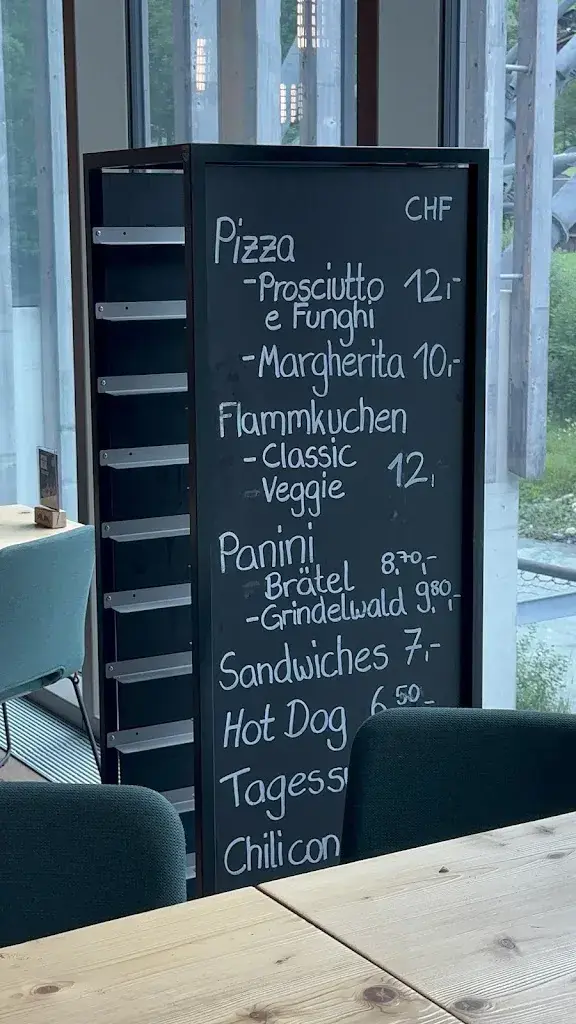 CHF
Pizza
-Prosciutto 12,-
e Funghi
-Margherita 10,-
Flammkuchen
-Classic
-Veggie 12,
Panini
Brätel 8,70,-
-Grindelwald 9,80,-
Sandwiches 7,-
Hot Dog 6,50-
Tagessu
Chili con